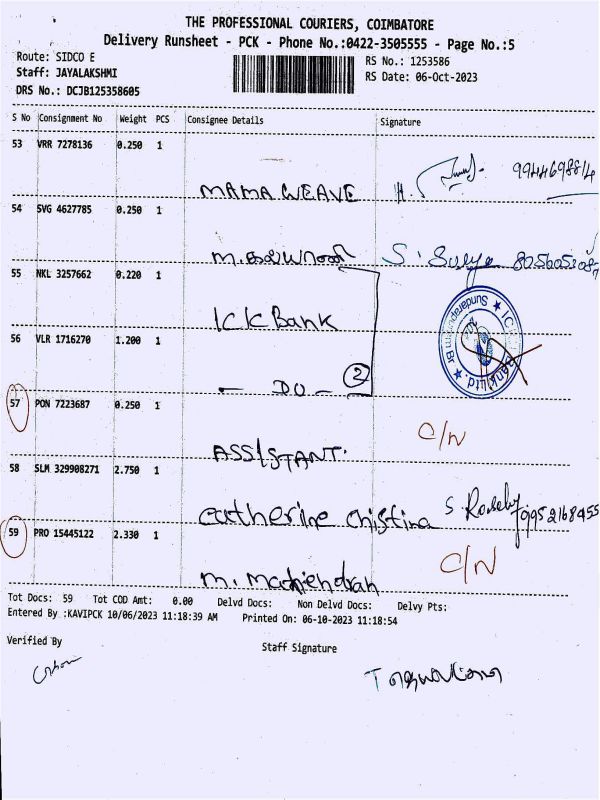 THE PROFESSIONAL COURIERS, COIMBATORE
Delivery Runsheet - PCK - Phone No.:0422-3505555 - Page No.:5
Route: SIDCO E
RS No.: 1253586
Staff: JAYALAKSHMI
RS Date: 06-Oct-2023
DRS No.: DCJB125358605
S No Consignment No Weight PCS Consignee Details Signature
53 VRR 7278136 0.250 1
MAMA WEAVE
54 SVG 4627785 0.250 1
S. Surya
55 NKL 3257662 0.220 1
ICIC Bank
56 VLR 1716270 1.200 1
- DO - 2
57 PON 7223687 0.250 1
C/N
ASSISTANT.
58 SLM 329908271 2.750 1
Catherine Chistina 9952168455
59 PRO 15445122 2.330 1
C/N
Tot Docs: 59 Tot COD Amt: 0.00 Delvd Docs: Non Delvd Docs: Delvy Pts:
Entered By :KAVIPCK 10/06/2023 11:18:39 AM Printed On: 06-10-2023 11:18:54
Verified By
Staff Signature